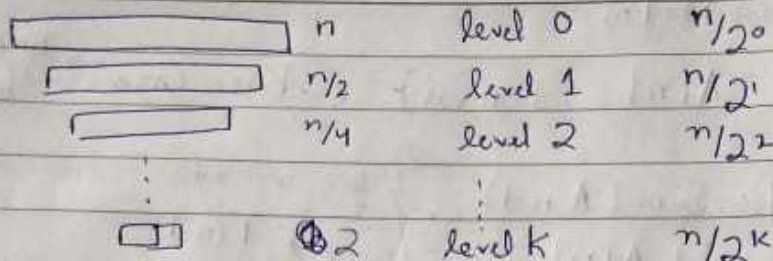 n level 0 n/2⁰
n/2 level 1 n/2¹
n/4 level 2 n/2²
2 level k n/2ᵏ